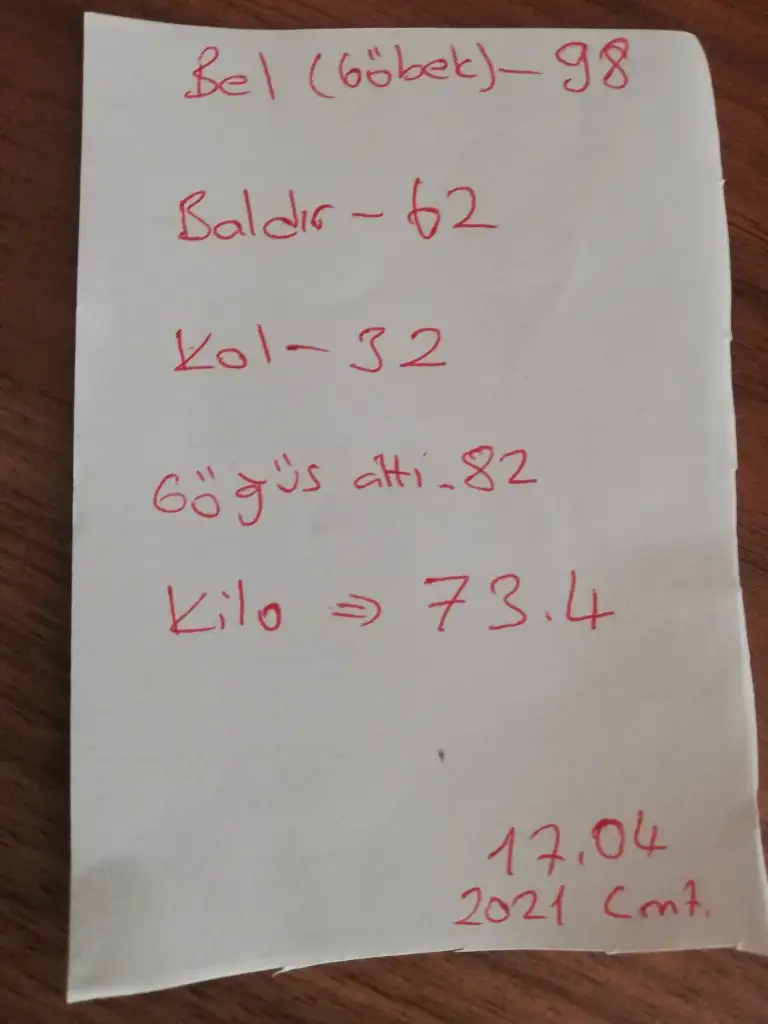 Bel (Göbek) - 98
Baldır - 62
Kol - 32
Göğüs altı - 82
Kilo => 73.4
17.04
2021 Cmt.